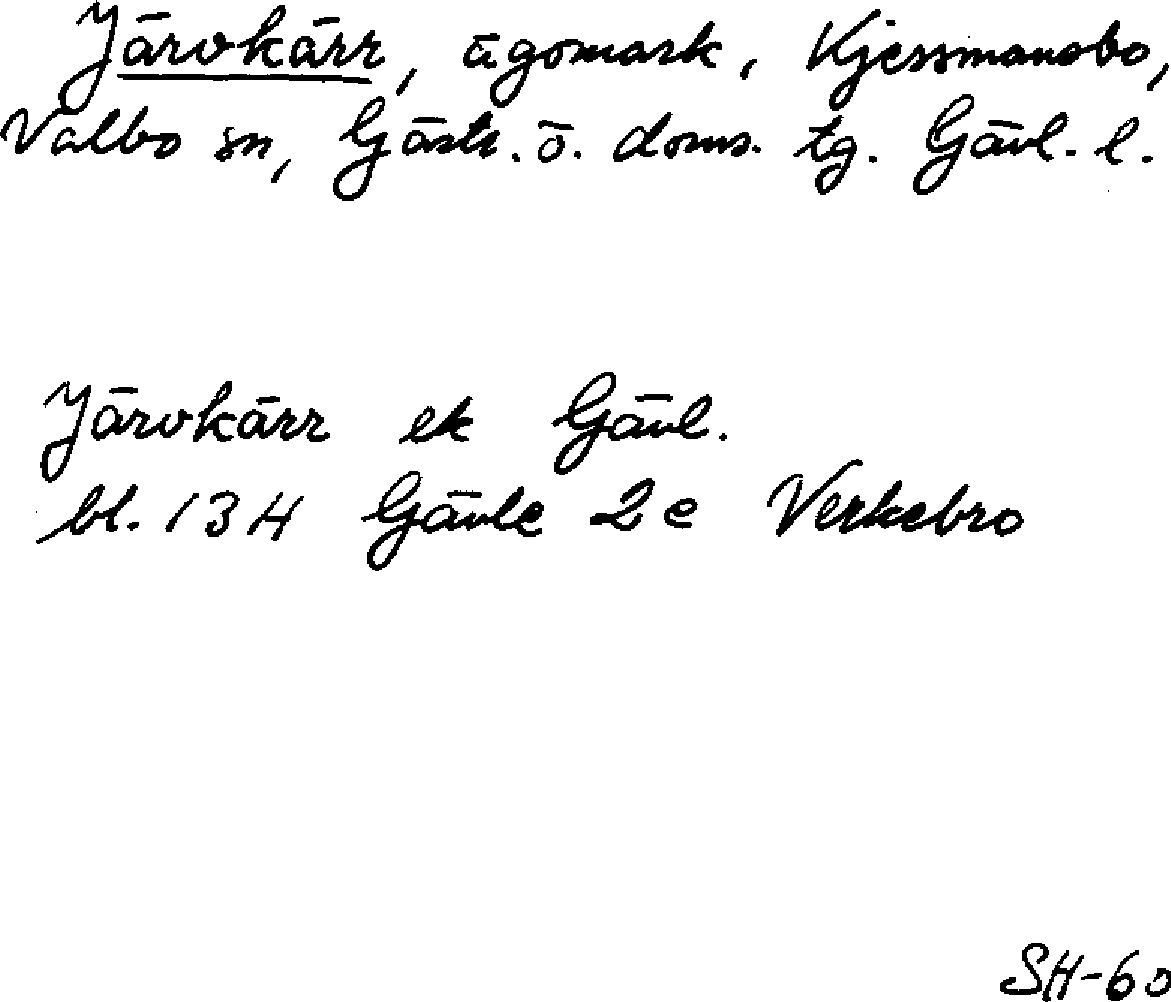 Järvkärr, ägomark, Kjessmansbo,
Valbo sn, Gästr. ö. doms. tg. Gävl. l.
Järvkärr ek Gävl.
bl. 13H Gävle 2e Verkebro
SH-60